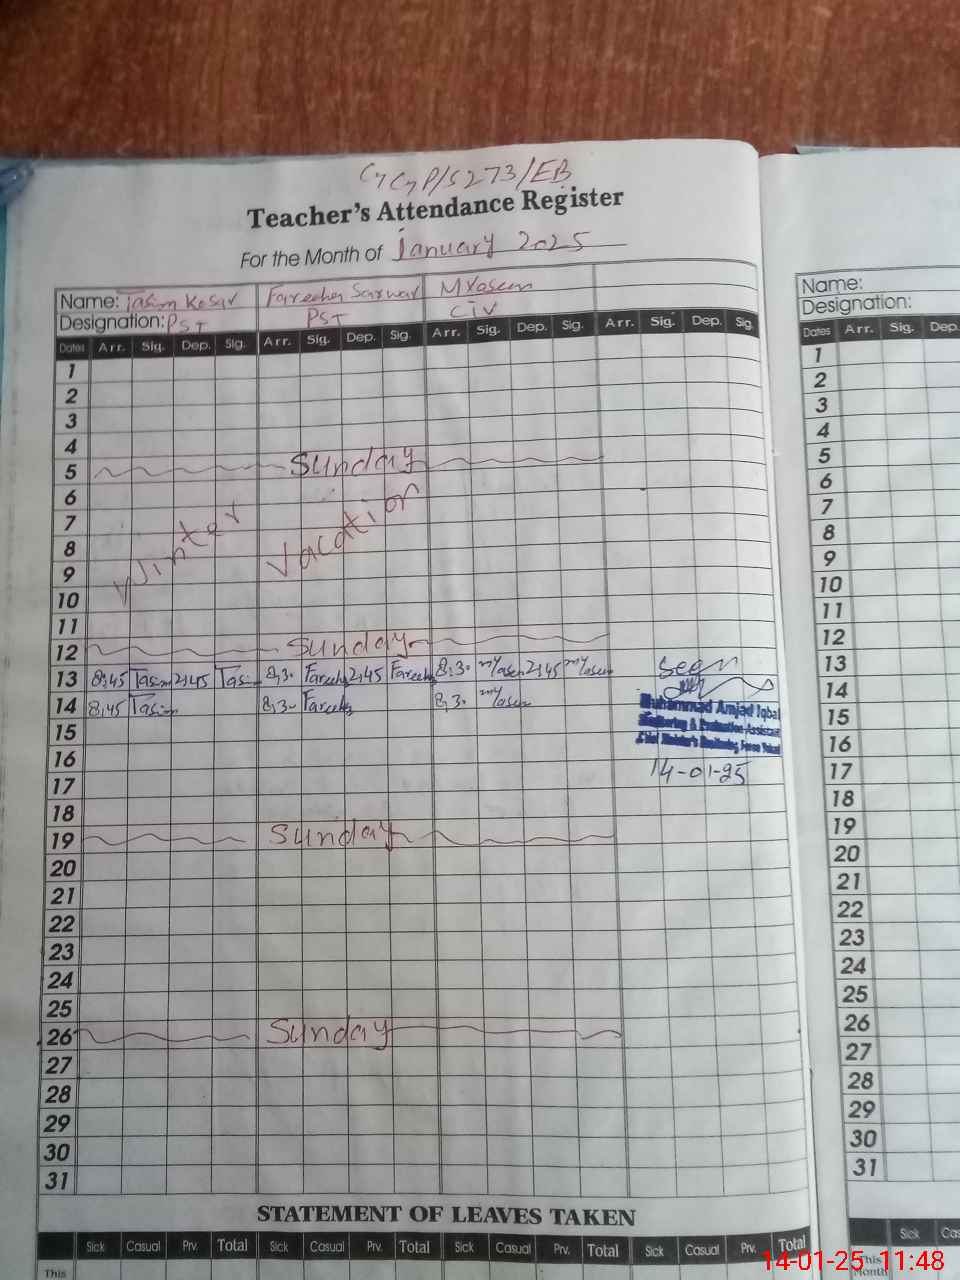 Teacher's Attendance Register
For the Month of January 2025
Name: Tasim Kosar Fareeha Sarwar M Yaseen
Designation: PST PST CIV
Dates Arr. Sig. Dep. Sig. Arr. Sig. Dep. Sig. Arr. Sig. Dep. Sig. Arr. Sig. Dep. Sig.
1
2
3
4
5 Sunday
6
7
8 Winter Vacation
9
10
11
12 Sunday
13 8,45 Tasim 2,45 Tasim 8,30 Fareeha 2,45 Fareeha 8,30 M Yaseen 2,45 M Yaseen
14 8,45 Tasim 8,30 Fareeha 8,30 M Yaseen
Seen
Muhammad Amjad Iqbal
Monitoring & Evaluation Assistant
Chief Minister's Monitoring Force
14-01-25
15
16
17
18
19 Sunday
20
21
22
23
24
25
26 Sunday
27
28
29
30
31
STATEMENT OF LEAVES TAKEN
Sick Casual Prv. Total Sick Casual Prv. Total Sick Casual Prv. Total Sick Casual Prv. Total
This
Name:
Designation:
Dates Arr. Sig. Dep.
1
2
3
4
5
6
7
8
9
10
11
12
13
14
15
16
17
18
19
20
21
22
23
24
25
26
27
28
29
30
31
Sick Cas
This
Month
14-01-25 11:48